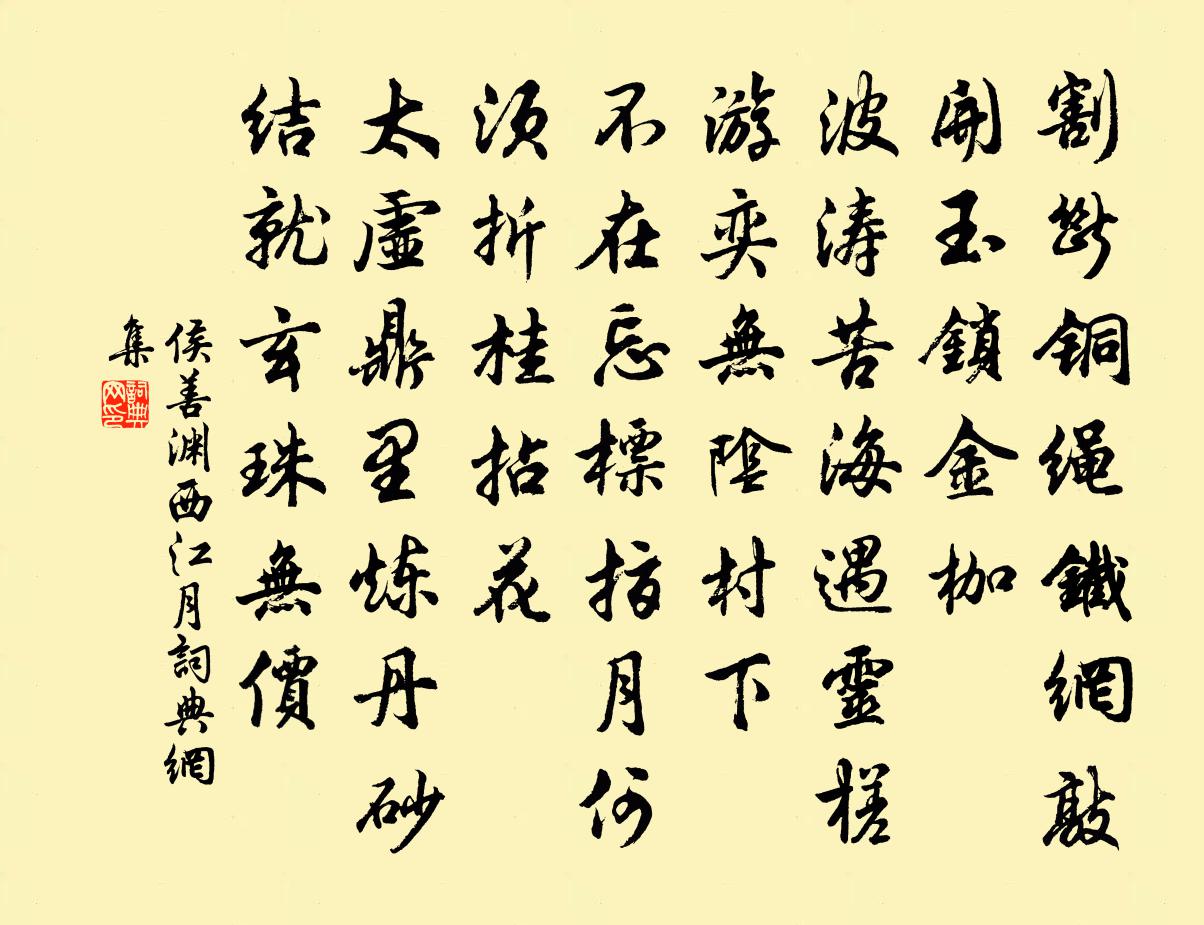 割斷铜绳鐵網敲
開玉鎖金枷
波涛苦海遇靈槎
游奕無陰村下
不在忘標指月何
须折桂拈花
太虛鼎里炼丹砂
结就玄珠無價
侯善渊西江月詞典網
集
詞典网印